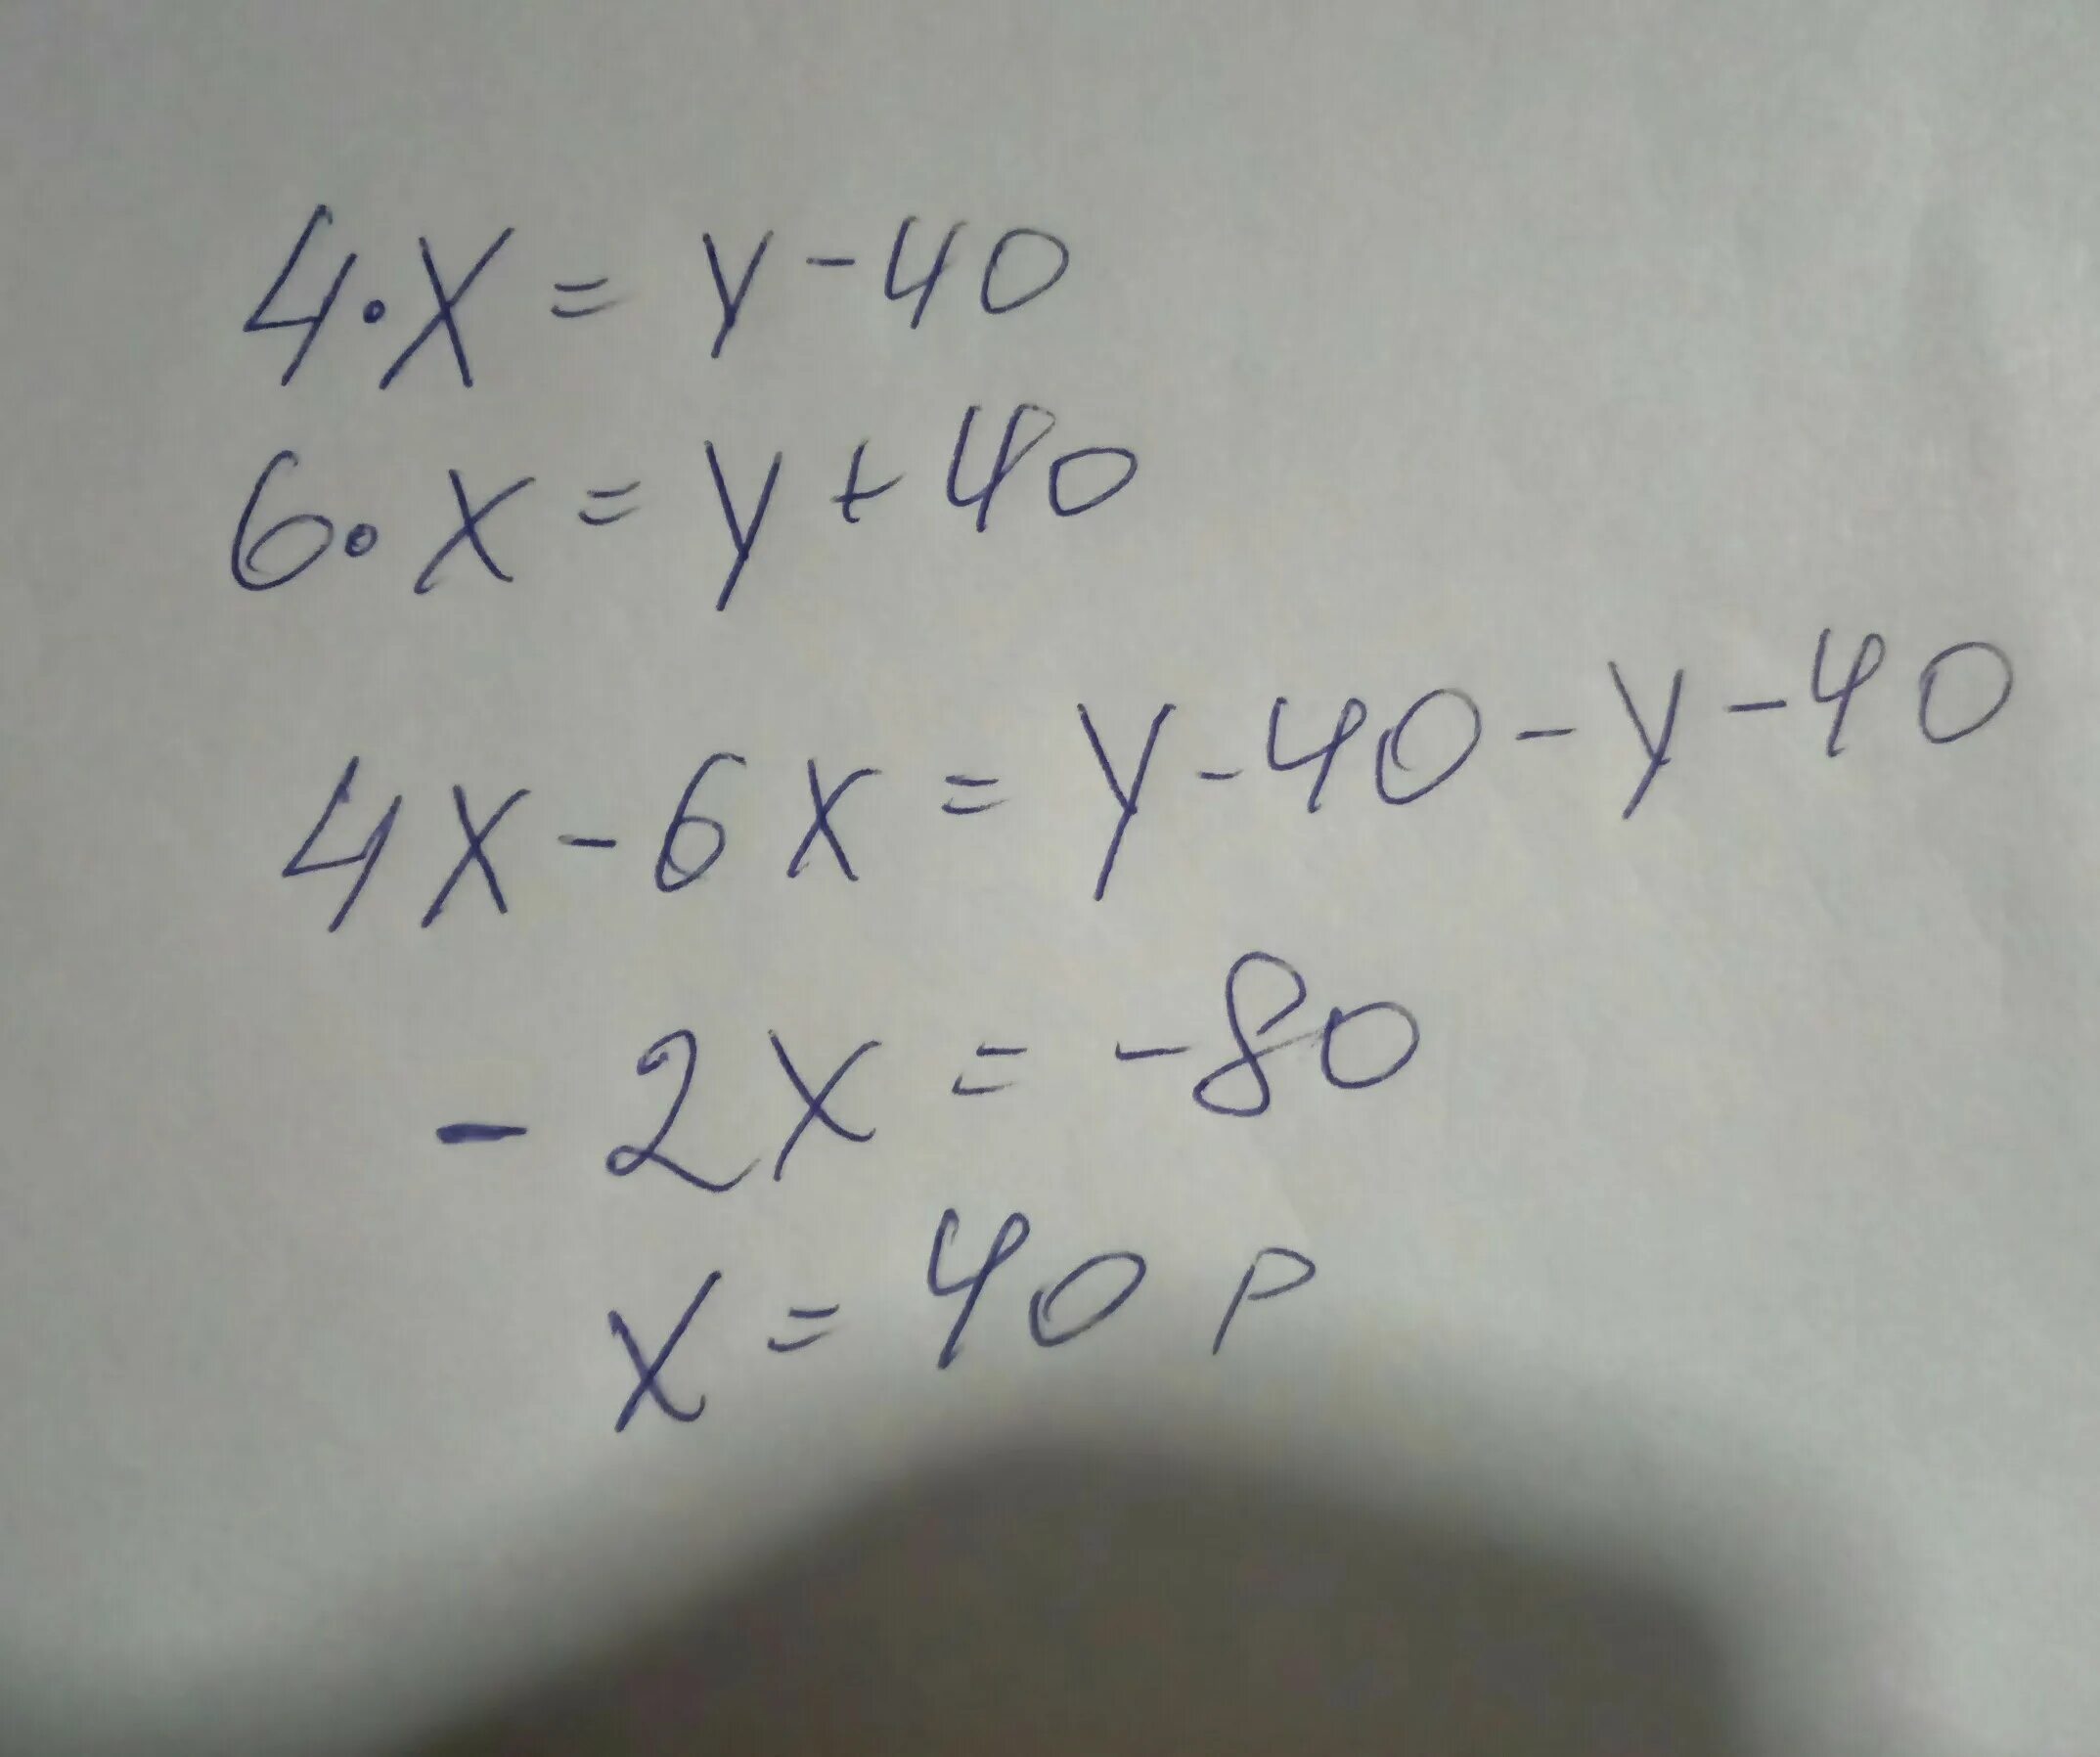 4·x = y - 40
6·x = y + 40
4x - 6x = y - 40 - y - 40
- 2x = -80
x = 40 р